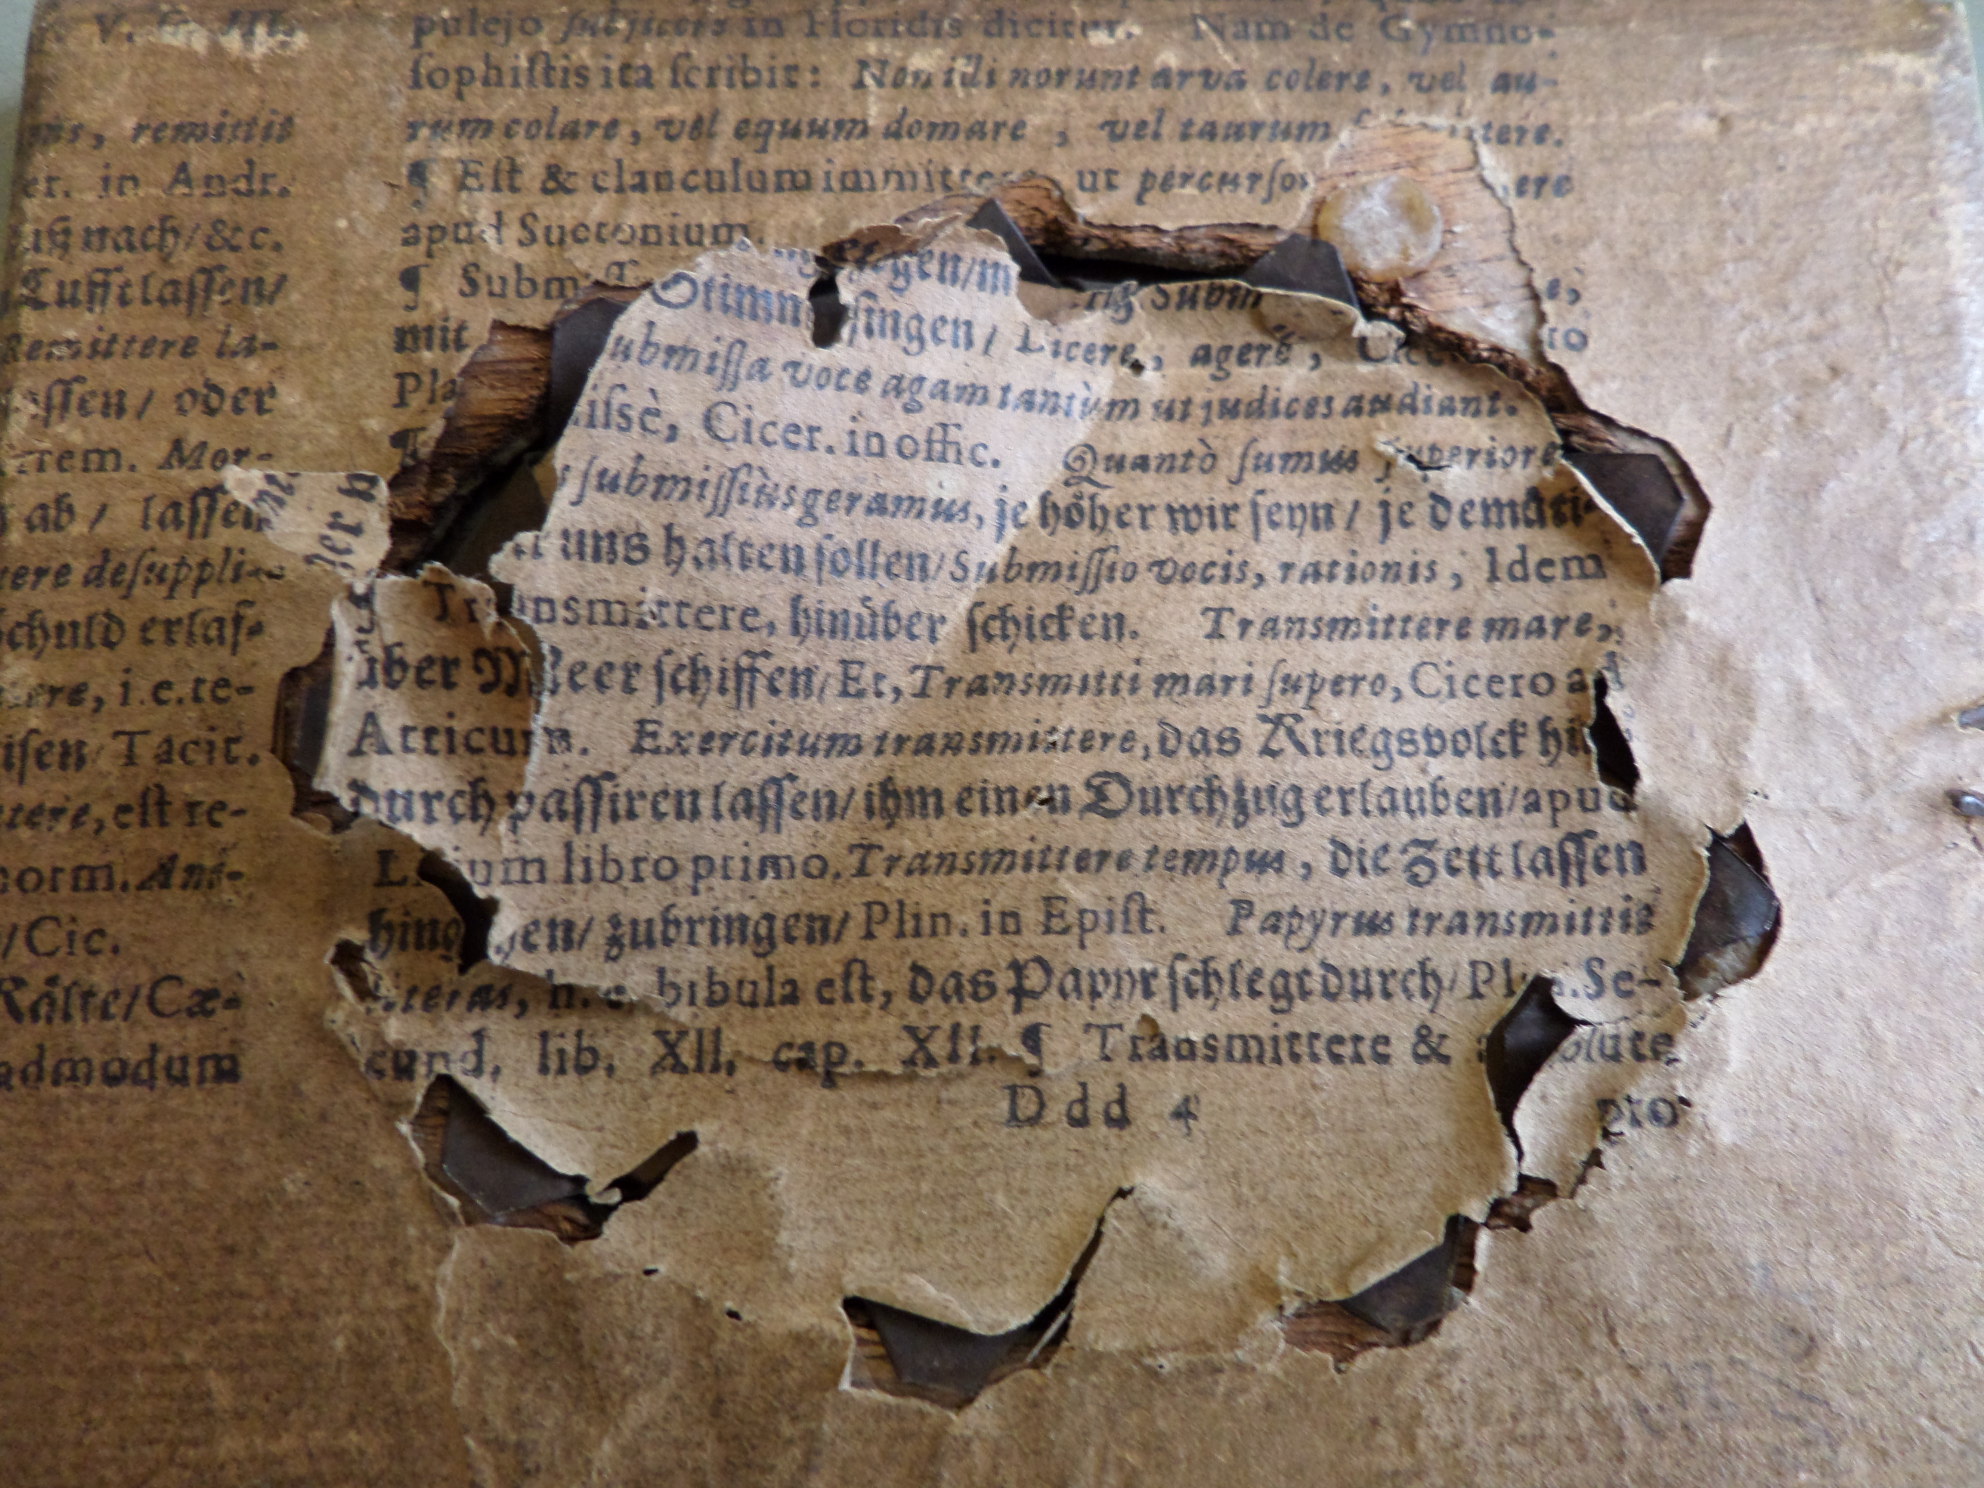 ons, remittit
er. in Andr.
nach/ &c.
Lufft lassen/
Remittere la-
assen/ oder
rem. Mor-
ab/ lassen
ere desuppli-
schuld erlas-
ere, i.e. re-
isen/ Tacit.
etere, est re-
norm. Ani-
/ Cic.
Kälte/ Cæ-
admodum
pulejo subjicere in Floridis dicitur. Nam de Gymno-
sophistis ita scribit: Non illi norunt arva colere, vel au-
rum colare, vel equum domare, vel taurum
¶ Est & clanculum immittere, ut
apud Suetonium.
¶ Subm
mit Stimm singen/ Dicere, agere,
Pla ubmissa voce agam tantùm ut judices audiant.
issè, Cicer. in offic. Quantò sumus superiore
s submissiùs geramus, je höher wir seyn/ je demüti-
uns halten sollen/ Submissio vocis, rationis, Idem
¶ Transmittere, hinüber schicken. Transmittere mare,
über Meer schiffen/ Et, Transmitti mari supero, Cicero ad
Atticum. Exercitum transmittere, das Kriegsvolck hin
durch passiren lassen/ ihm einen Durchzug erlauben/ apud
Livium libro primo. Transmittere tempus, die Zeit lassen
hingehen/ zubringen/ Plin. in Epist. Papyrus transmittit
literas, h. e. bibula est, das Papyr schlegt durch/ Plin. Se-
cund. lib. XII. cap. XII. ¶ Transmittere & absolute
Ddd 4 pro